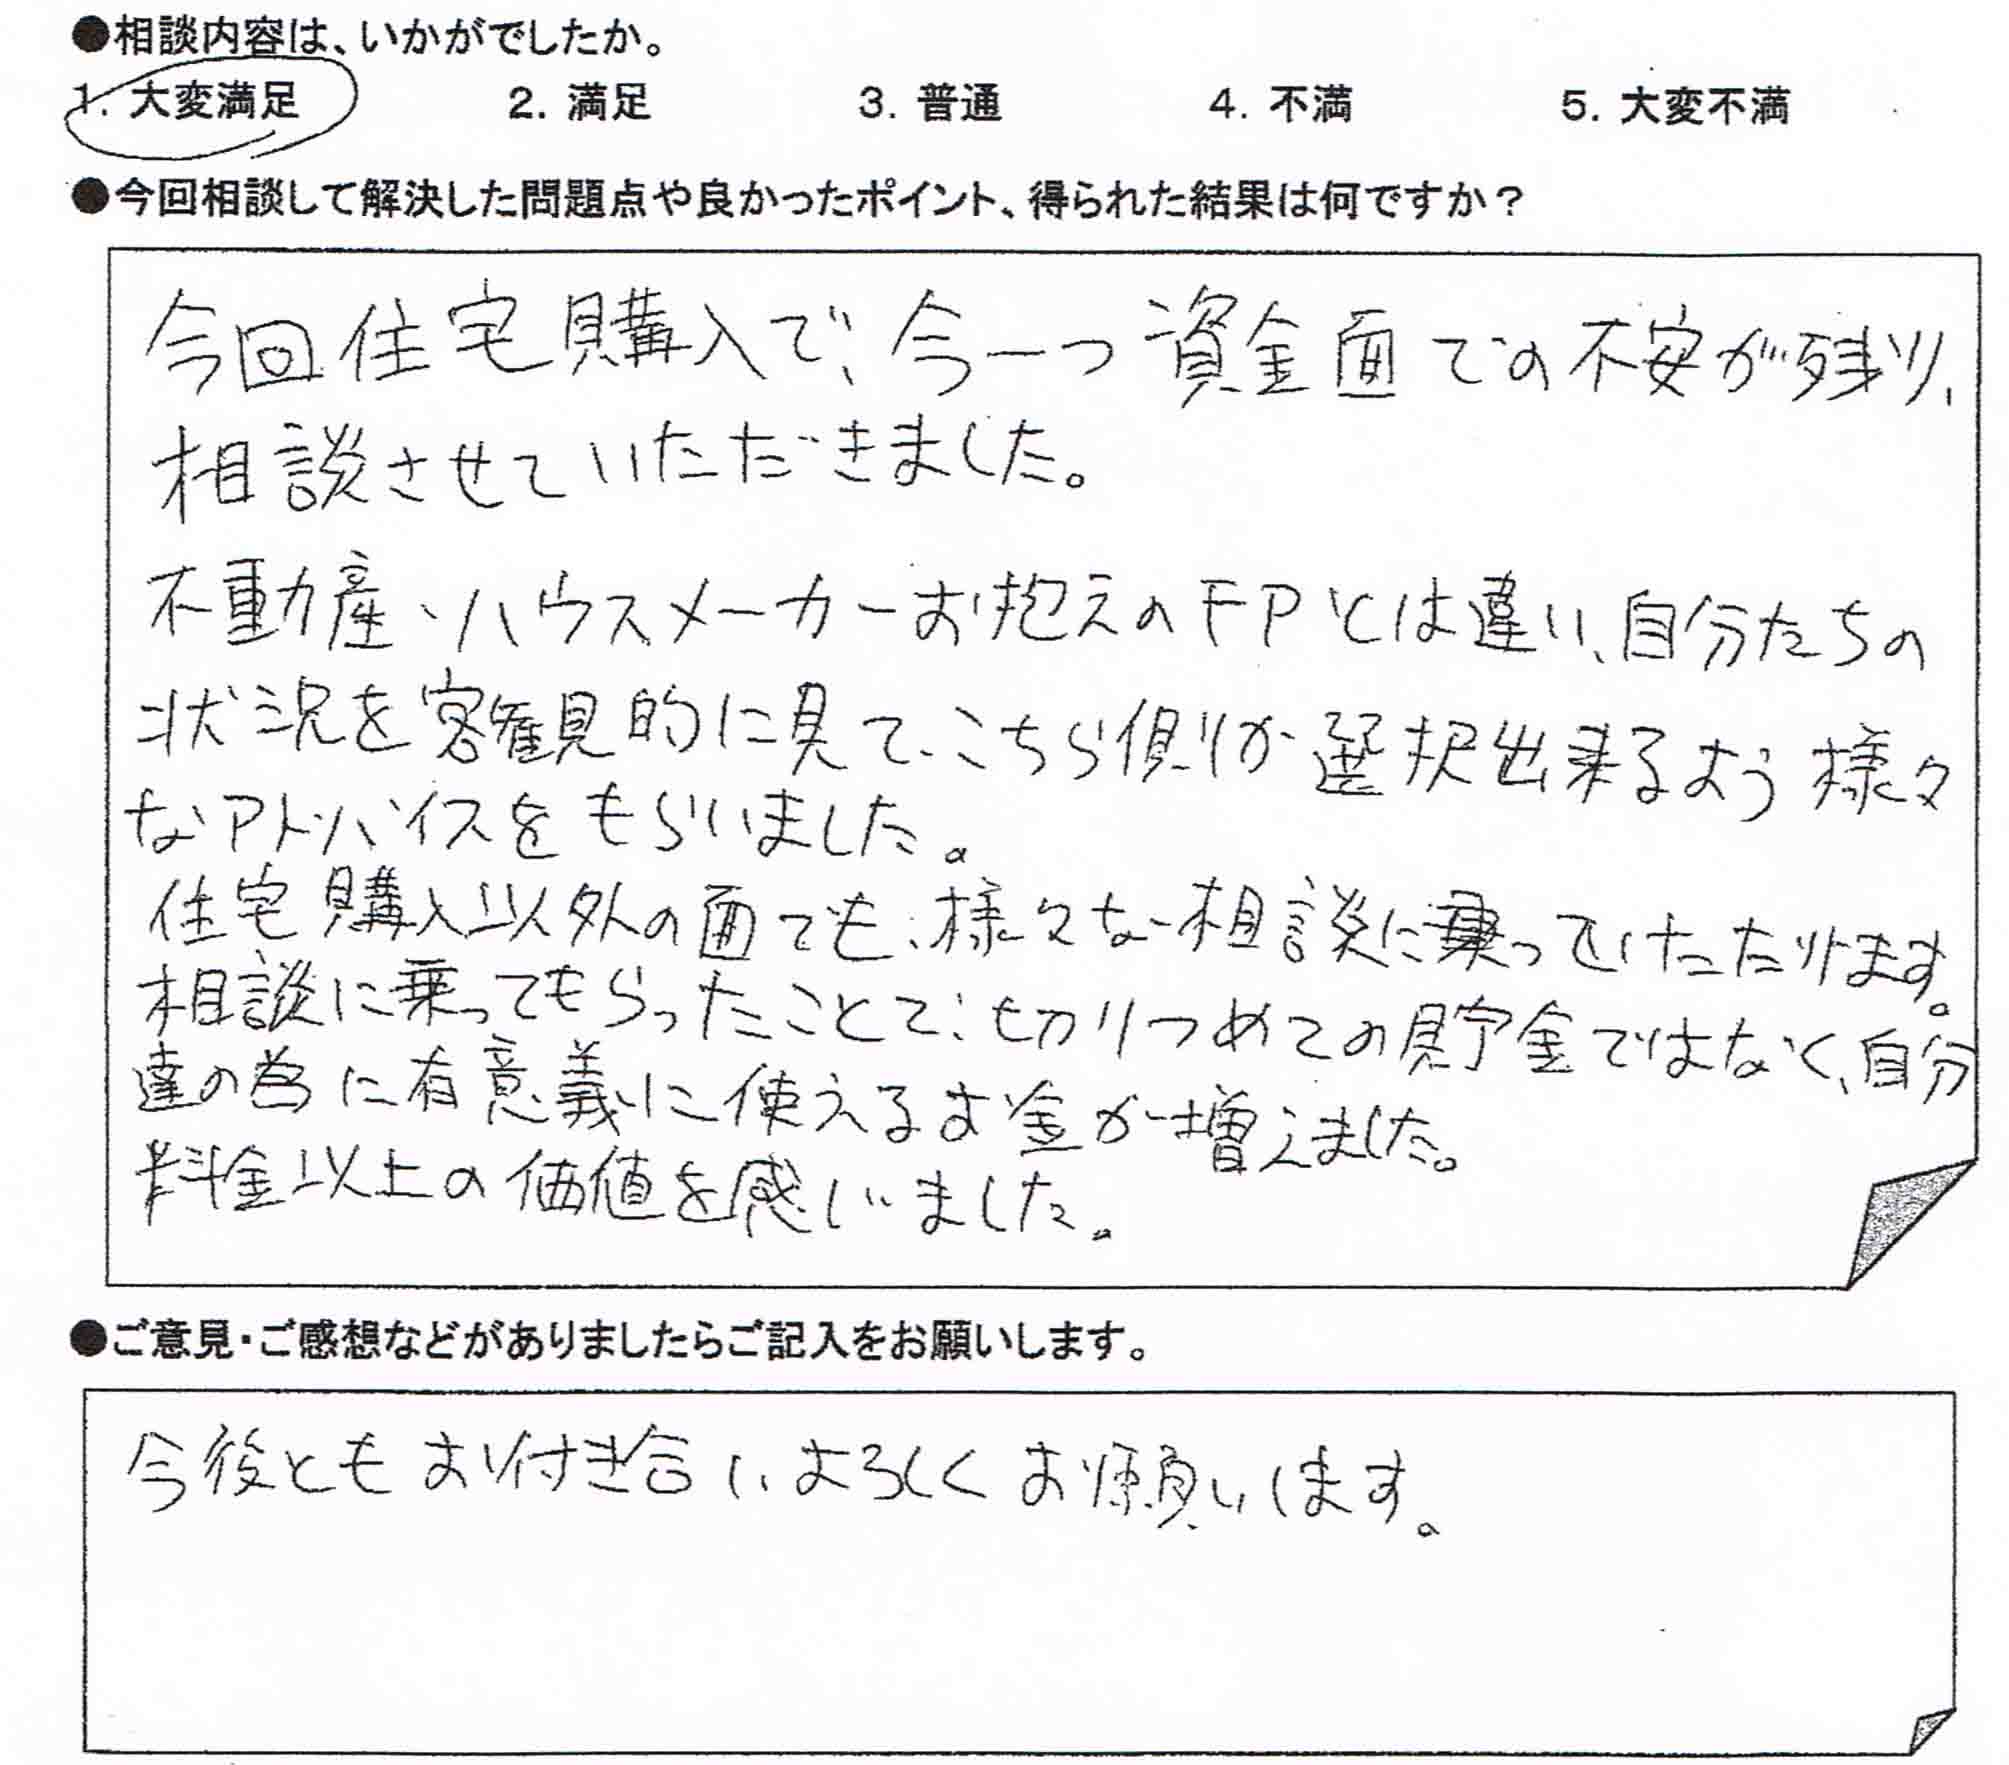 ●相談内容は、いかがでしたか。
1. 大変満足 2. 満足 3. 普通 4. 不満 5. 大変不満
●今回相談して解決した問題点や良かったポイント、得られた結果は何ですか？
今回住宅購入で、今一つ資金面での不安が残り、
相談させていただきました。
不動産・ハウスメーカーお抱えのFPとは違い、自分たちの
状況を客観的に見て、こちら側が選択出来るよう様々
なアドバイスをもらいました。
住宅購入以外の面でも、様々な相談に乗っていただけます。
相談に乗ってもらったことで、切りつめての貯金ではなく、自分
達の為に有意義に使えるお金が増えました。
料金以上の価値を感じました。
●ご意見・ご感想などがありましたらご記入をお願いします。
今後ともお付き合いよろしくお願いします。